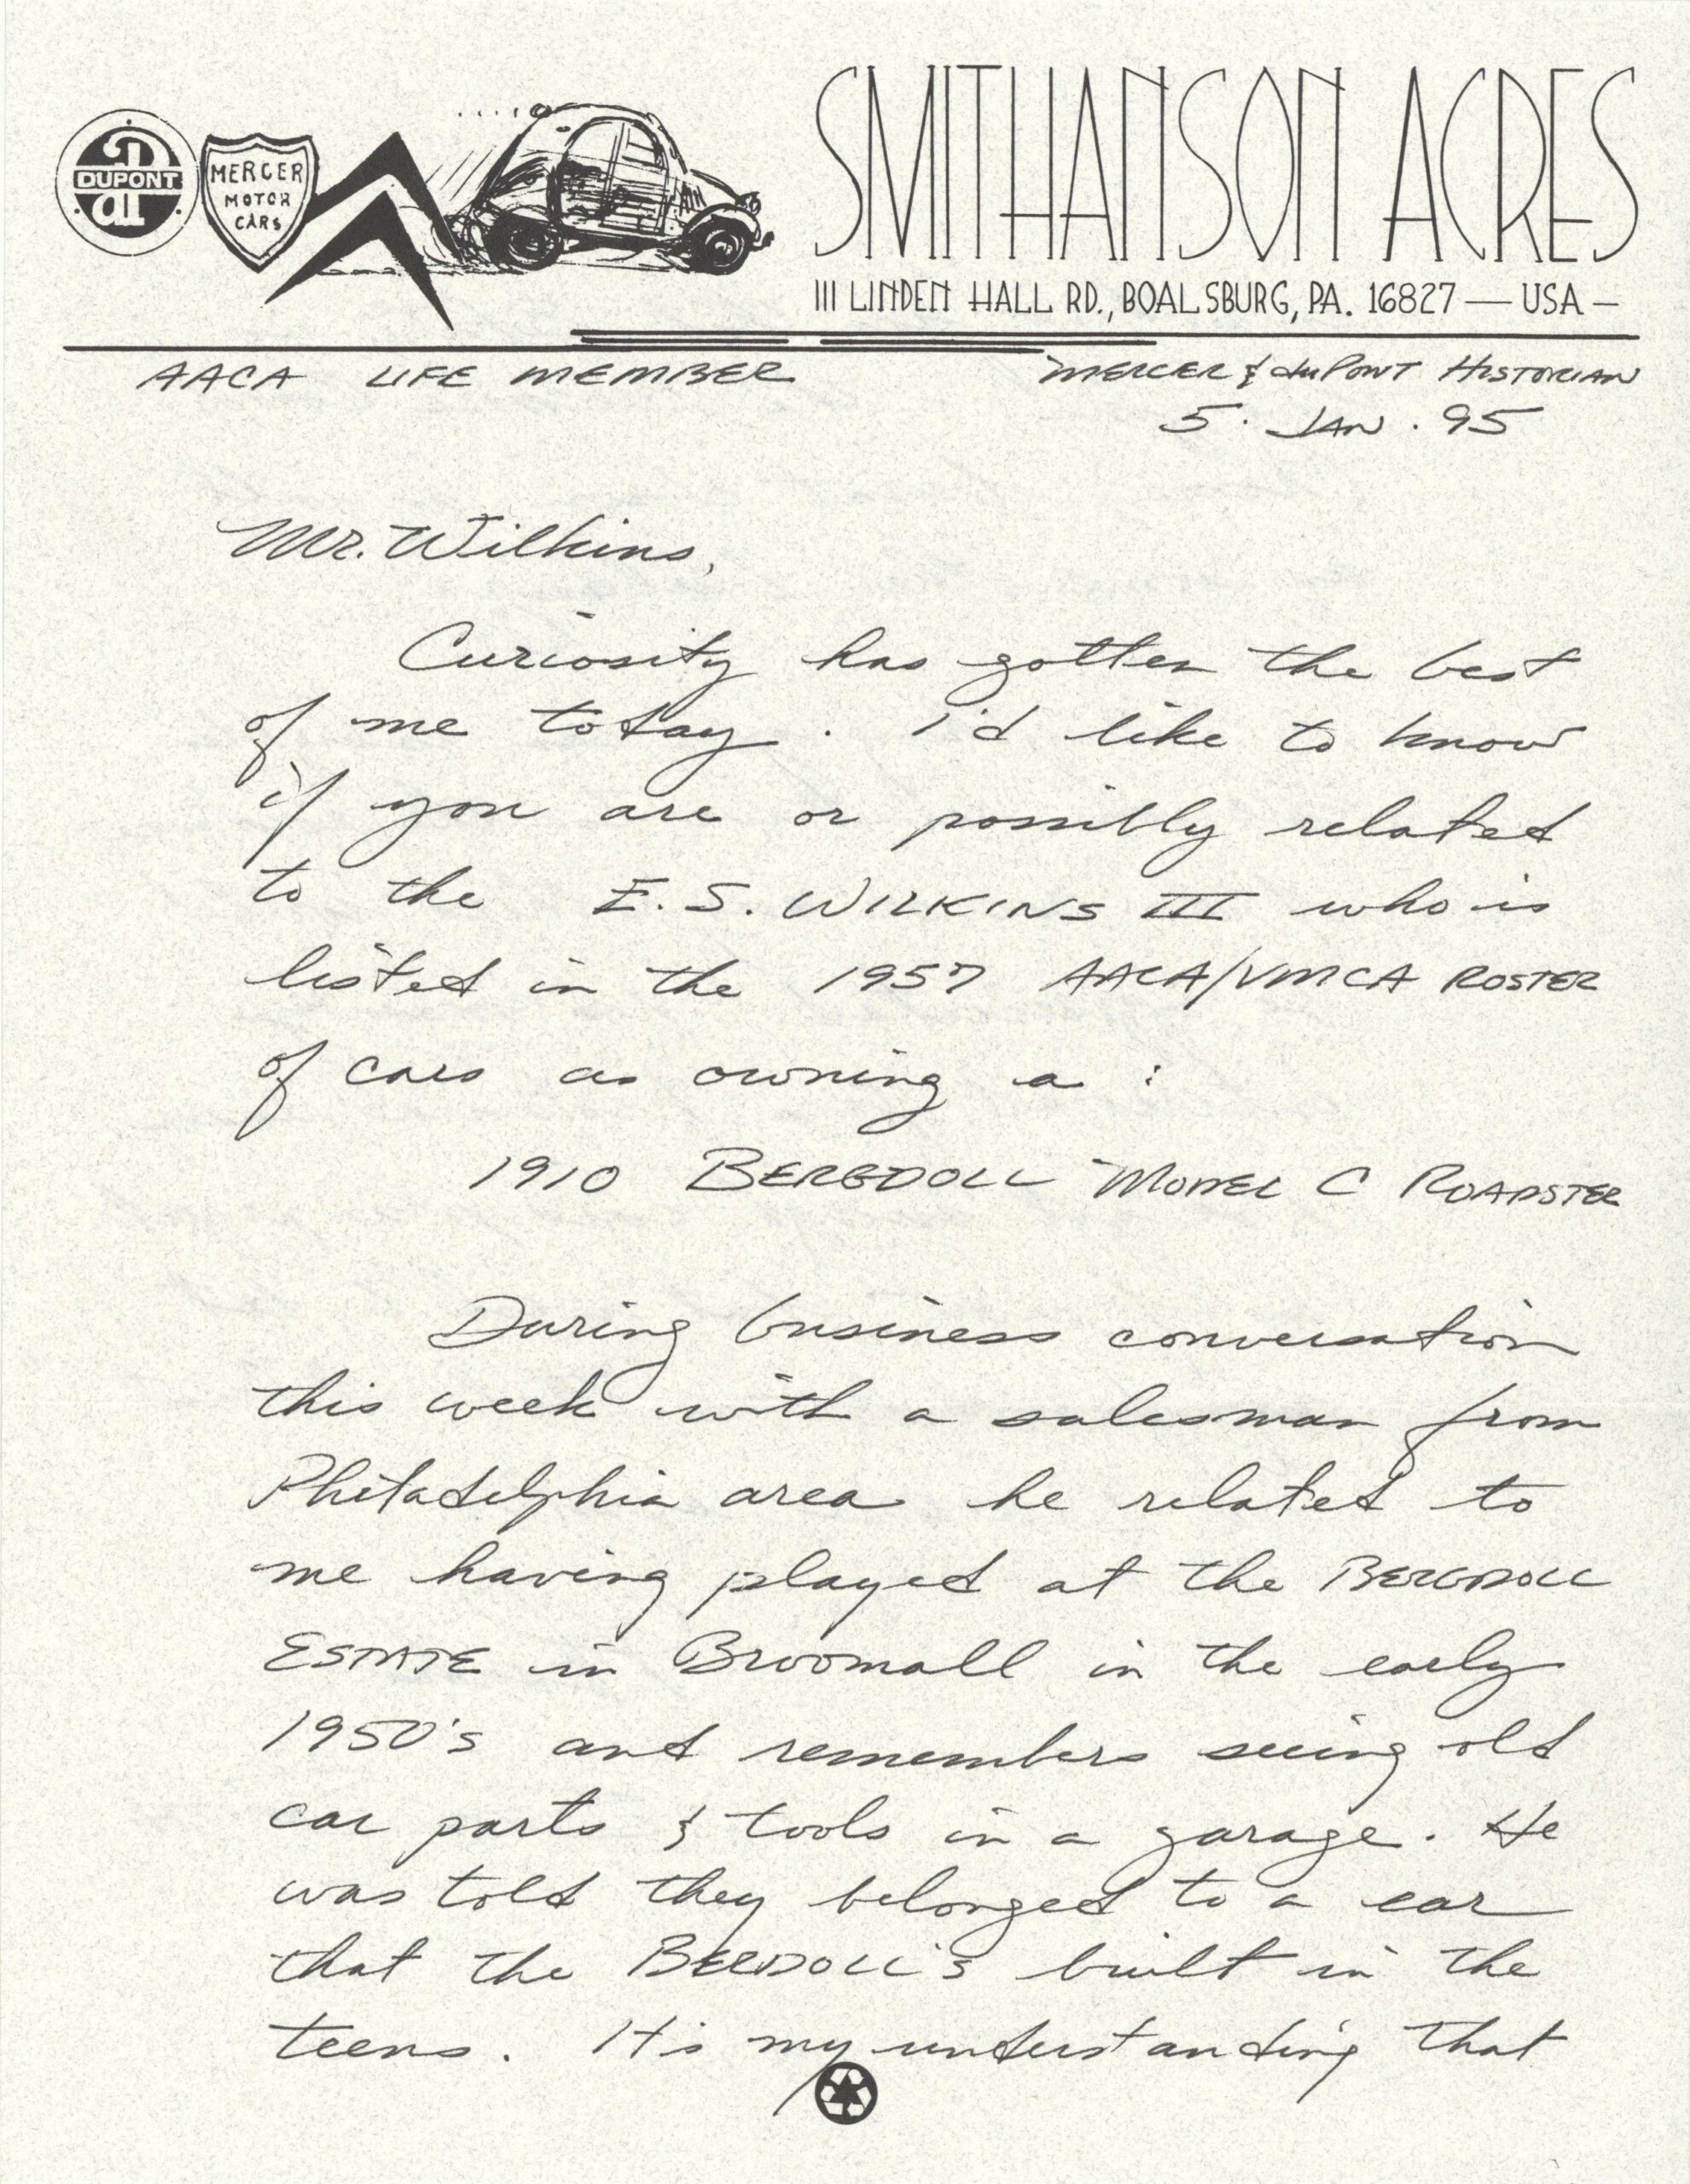 SMITHANSON ACRES
DUPONT
MERCER
MOTOR
CARS
111 LINDEN HALL RD., BOALSBURG, PA. 16827 — USA —
AACA LIFE MEMBER
MERCER & duPONT HISTORIAN
5. JAN. 95
Mr. Wilkins,
Curiosity has gotten the best
of me today. I'd like to know
if you are or possibly related
to the E.S. WILKINS III who is
listed in the 1957 AACA/VMCA ROSTER
of cars as owning a :
1910 BERGDOLL MODEL C ROADSTER
During business conversation
this week with a salesman from
Philadelphia area he related to
me having played at the BERGDOLL
ESTATE in Broomall in the early
1950's and remembers seeing old
car parts & tools in a garage. He
was told they belonged to a car
that the BERDOLL'S built in the
teens. It is my understanding that